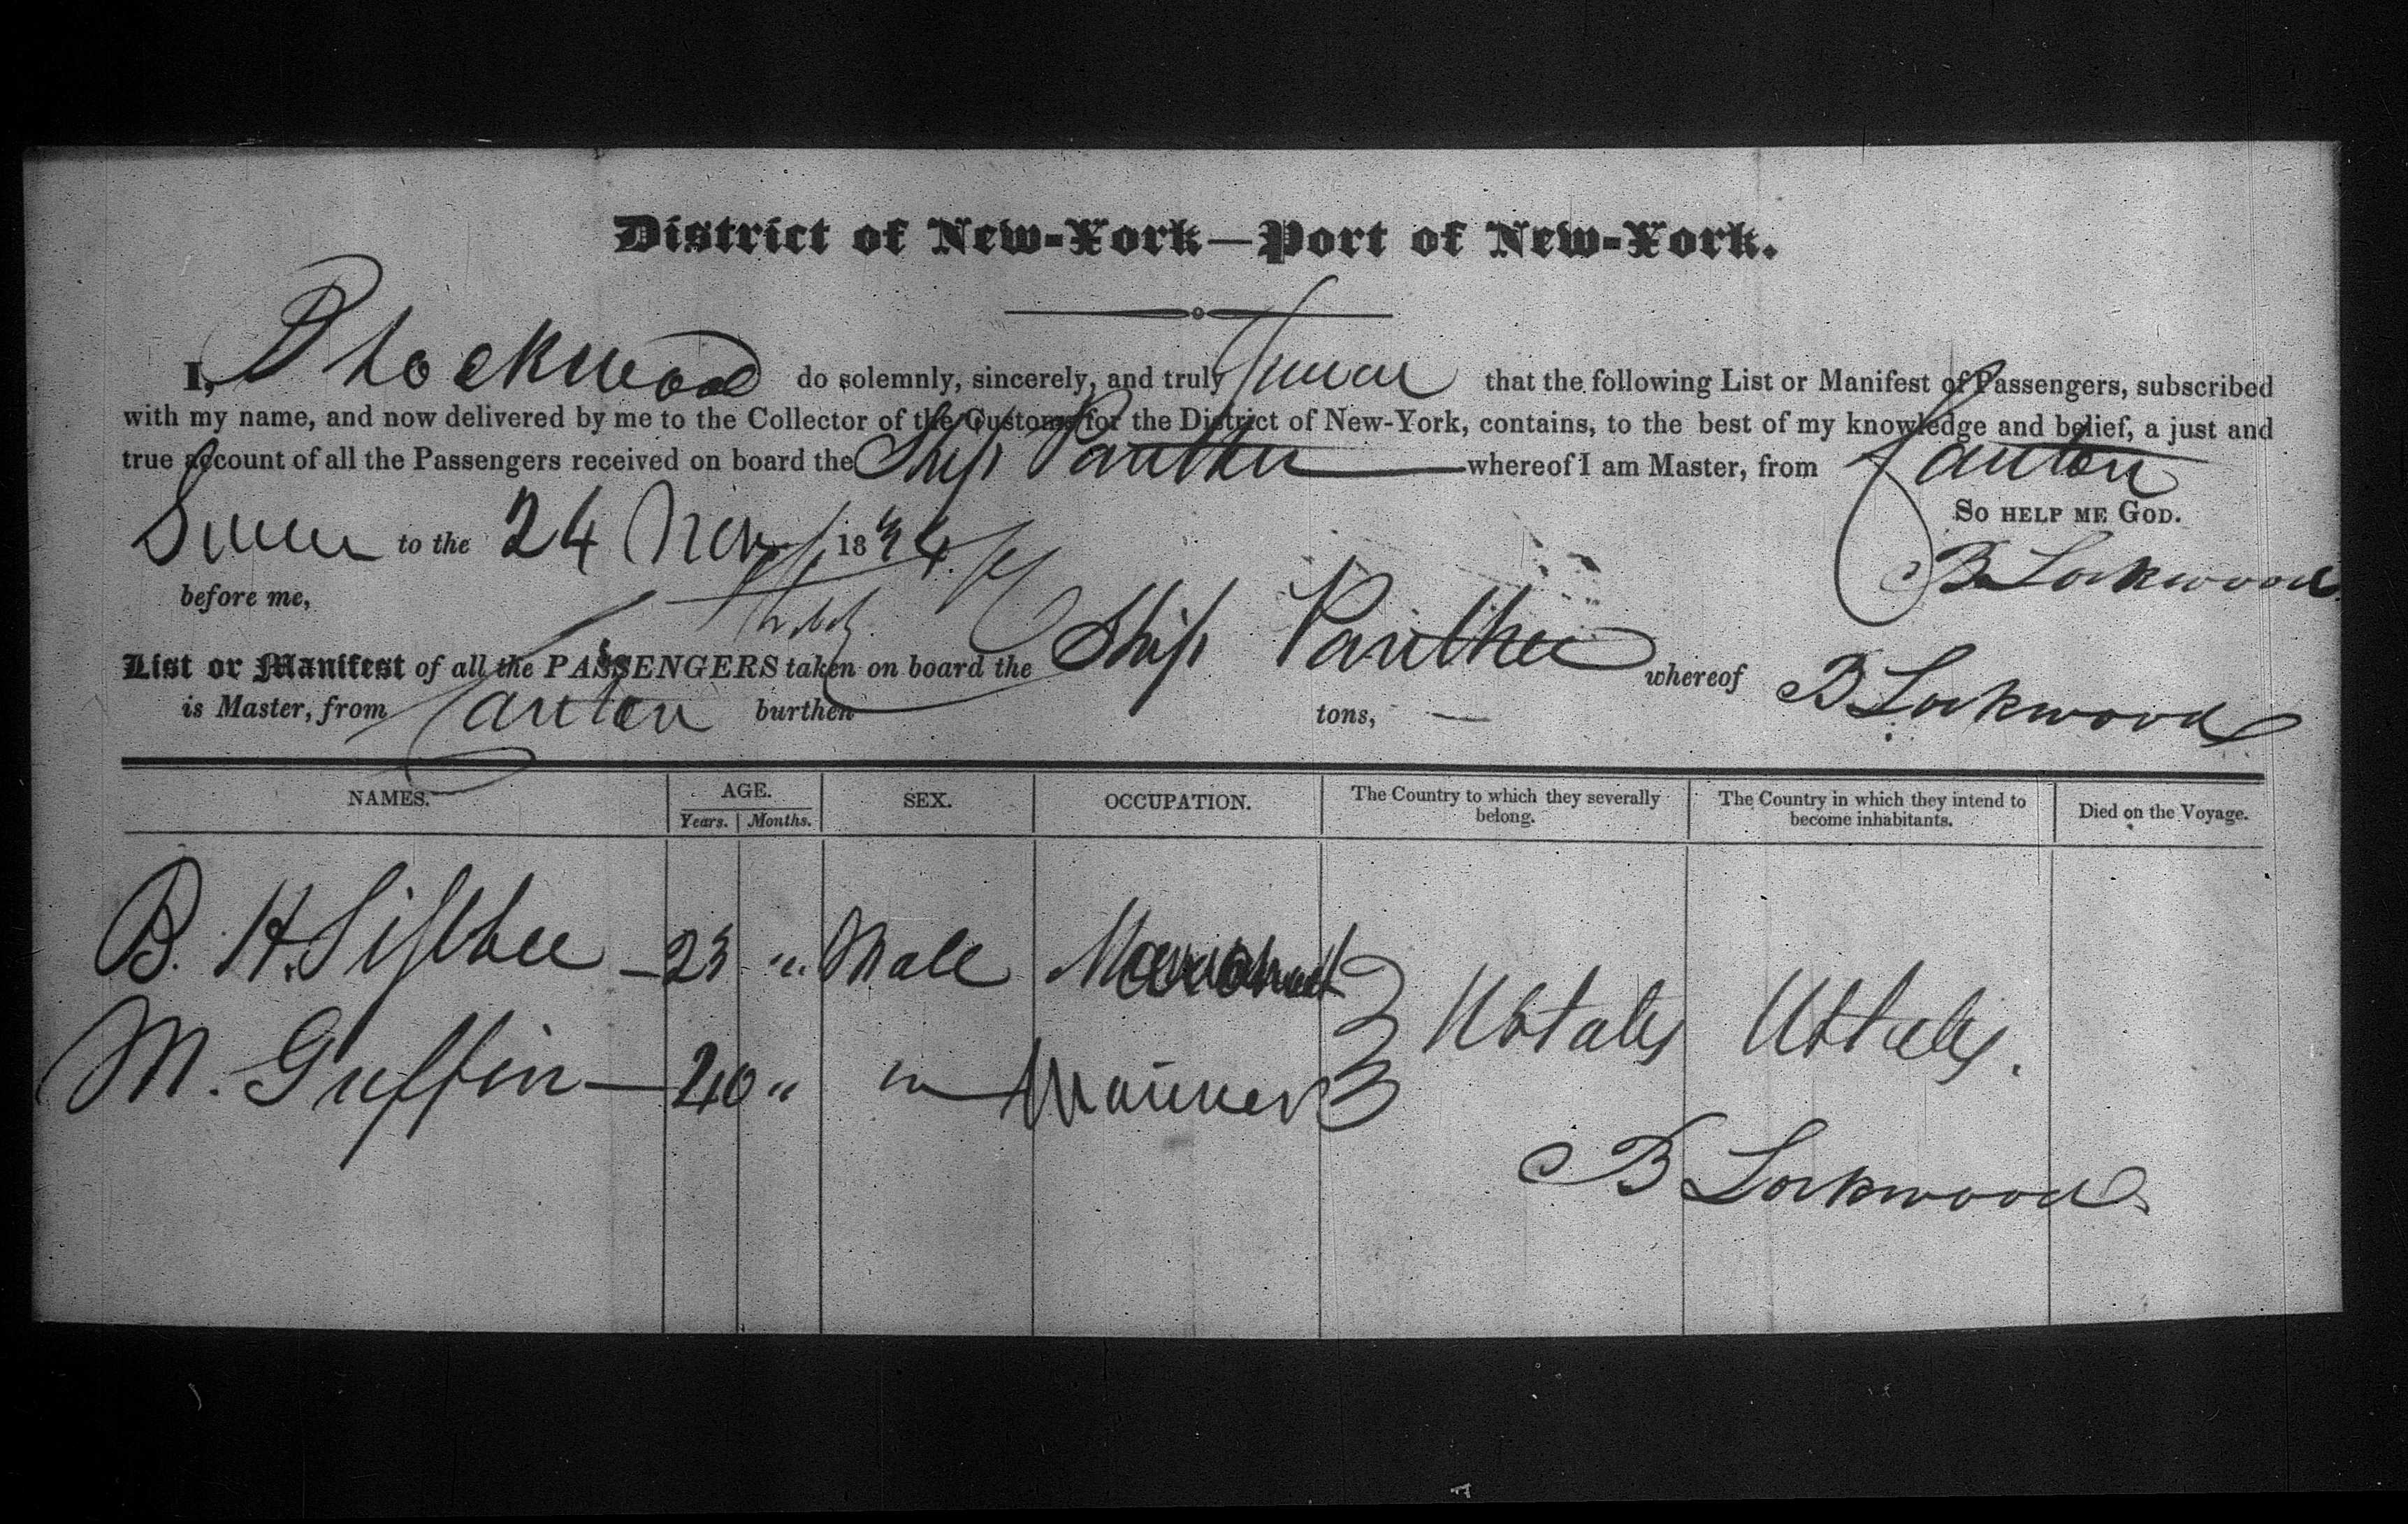 District of New-York—Port of New-York.
I, B Lockwood do solemnly, sincerely, and truly swear that the following List or Manifest of Passengers, subscribed
with my name, and now delivered by me to the Collector of the Customs for the District of New-York, contains, to the best of my knowledge and belief, a just and
true account of all the Passengers received on board the Ship Panther whereof I am Master, from Canton
So help me God.
Sworn to the 24 Nov 1834
B Lockwood
before me,
List or Manifest of all the PASSENGERS taken on board the Ship Panther whereof B Lockwood
is Master, from Canton burthen tons, —
NAMES. AGE. SEX. OCCUPATION. The Country to which they severally belong. The Country in which they intend to become inhabitants. Died on the Voyage.
Years. Months.
B. H. Silsbee — 23 " Male
M. Griffin — 40 " " Mariner
UStates UStates.
B Lockwood